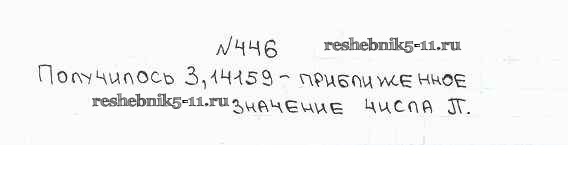 №446
reshebnik5-11.ru
Получилось 3,14159 - приближенное
reshebnik5-11.ru
значение числа П.